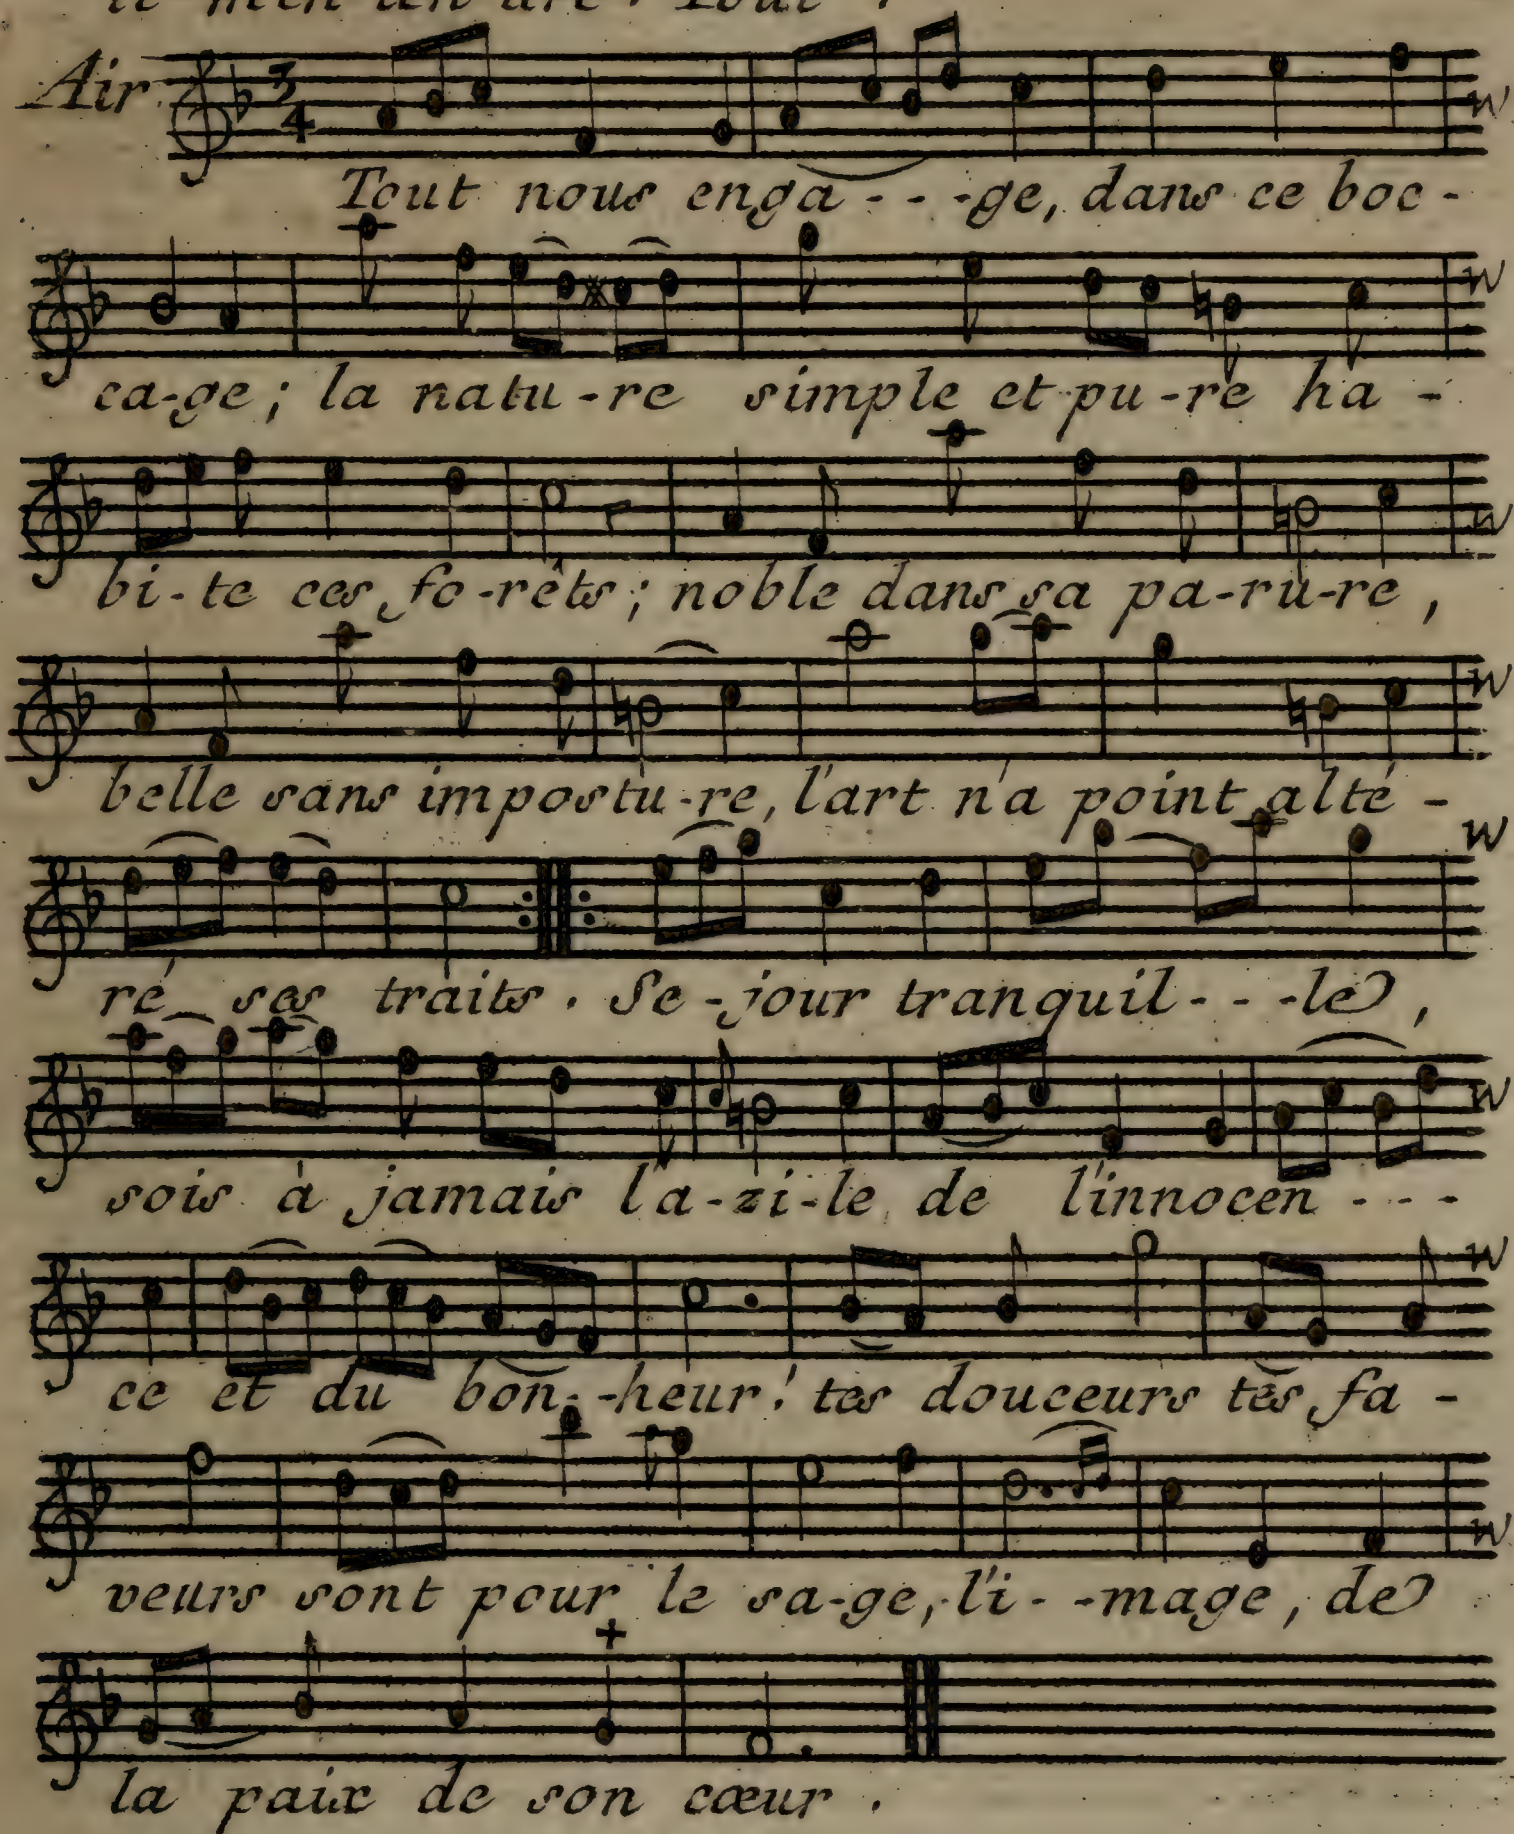 Air 3/4
Tout nous enga - - -ge, dans ce boc-
ca-ge; la natu-re simple et pu-re ha-
bi-te ces fo-rêts; noble dans sa pa-ru-re,
belle sans impostu-re, l'art n'a point alté-
ré ses traits. Se-jour tranquil - - -le,
sois à jamais l'a-zi-le de l'innocen - - -
ce et du bon- -heur! tes douceurs tes fa-
veurs sont pour le sa-ge, l'i- -mage, de
la paix de son cœur.